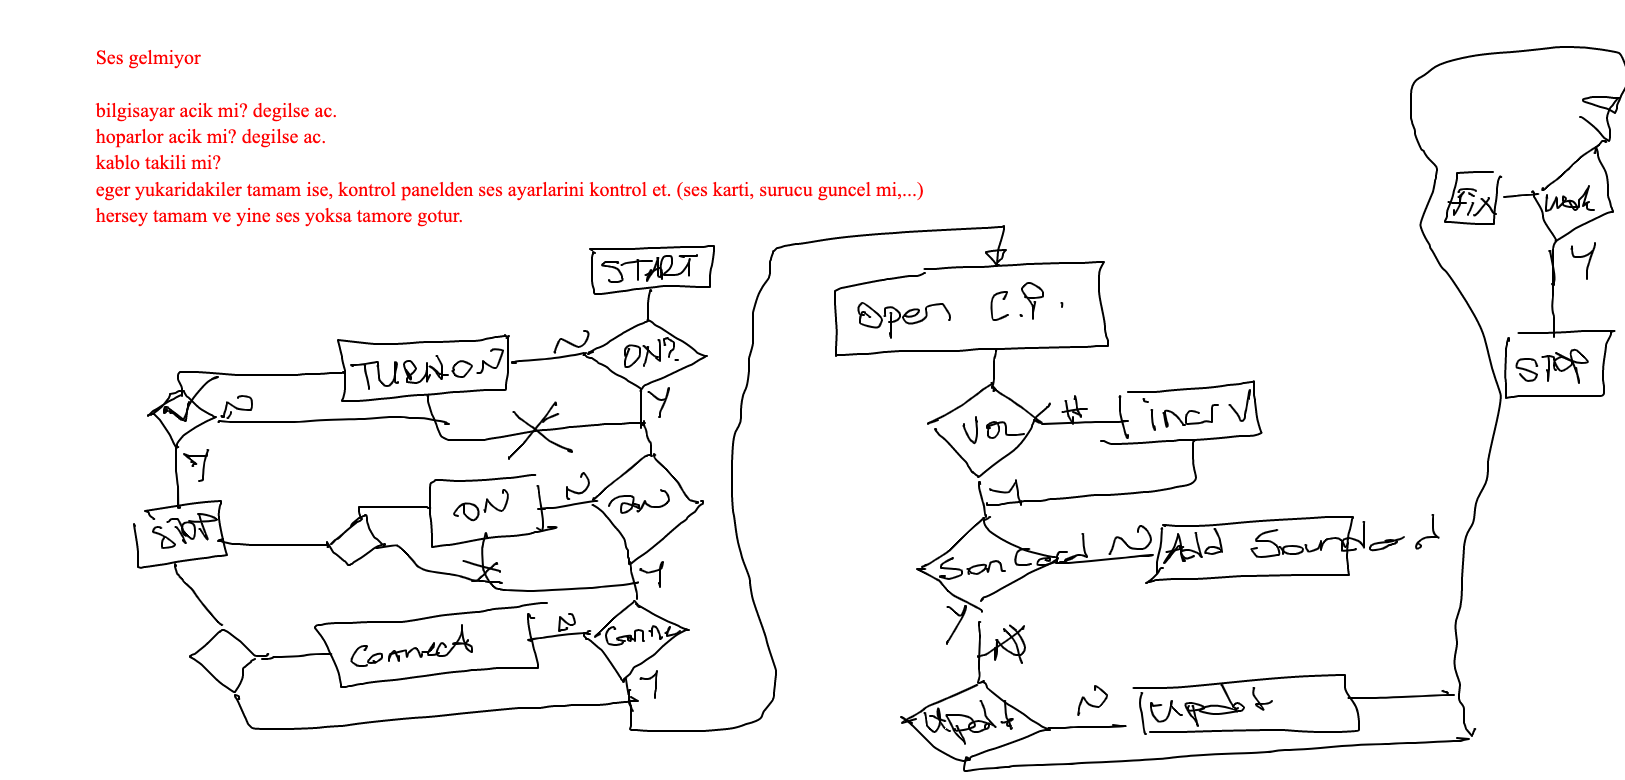 Ses gelmiyor
bilgisayar acik mi? degilse ac.
hoparlor acik mi? degilse ac.
kablo takili mi?
eger yukaridakiler tamam ise, kontrol panelden ses ayarlarini kontrol et. (ses karti, surucu guncel mi,...)
hersey tamam ve yine ses yoksa tamore gotur.
START
ON?
N
TURN ON
Y
N
Y
STOP
ON
N
ON
Y
Conne
N
Connect
Y
Open C.P.
VOL
incr V
Y
Son Card
N
Add Soundcard
Y
N
Updt
N
Updt
work
Fix
Y
STOP